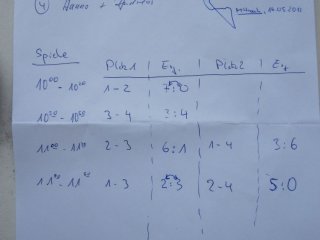 ④ Hanno +
14.05.2011
Spiele Platz 1 Erg. Platz 2 Erg
10⁰⁰ - 10²⁰ 1 - 2 7:0
10³⁰ - 10⁵⁰ 3 - 4 3:4
11⁰⁰ - 11²⁰ 2 - 3 6:1 1 - 4 3:6
1 - 3 2:3 2 - 4 5:0